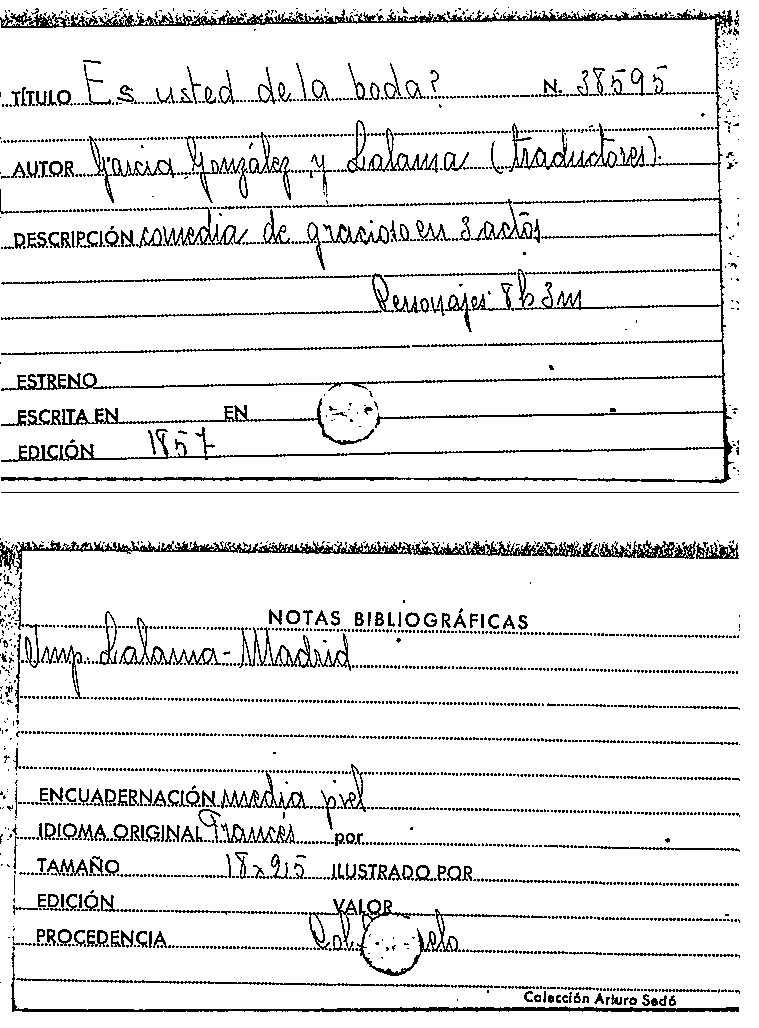 TÍTULO Es usted de la boda? N. 38595
AUTOR García González y Lalama (traductores).
DESCRIPCIÓN comedia de gracioso en 3 actos
Personajes: 8 h 3 m
ESTRENO
ESCRITA EN EN
EDICIÓN 1857
NOTAS BIBLIOGRÁFICAS
Imp. Lalama - Madrid
ENCUADERNACIÓN media piel
IDIOMA ORIGINAL Francés por
TAMAÑO 18x9,5 ILUSTRADO POR
EDICIÓN VALOR
PROCEDENCIA
Colección Arturo Sedó